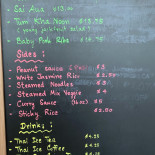 - Sai Aua $ 13.95
- Tum Kha Noon $ 13.95
(young jackfruit salad)
- Baby Pork Ribs
Sides :
- Peanut sauce $ 3
- White Jasmine Rice $ 3
- Steamed Noodles $ 3
- Steamed Mix Veggie $ 4
- Curry Sauce (16oz) $ 5
- Sticky Rice $ 3.50
Drinks :
- Thai Ice Tea $ 4.25
- Thai Ice Coffee